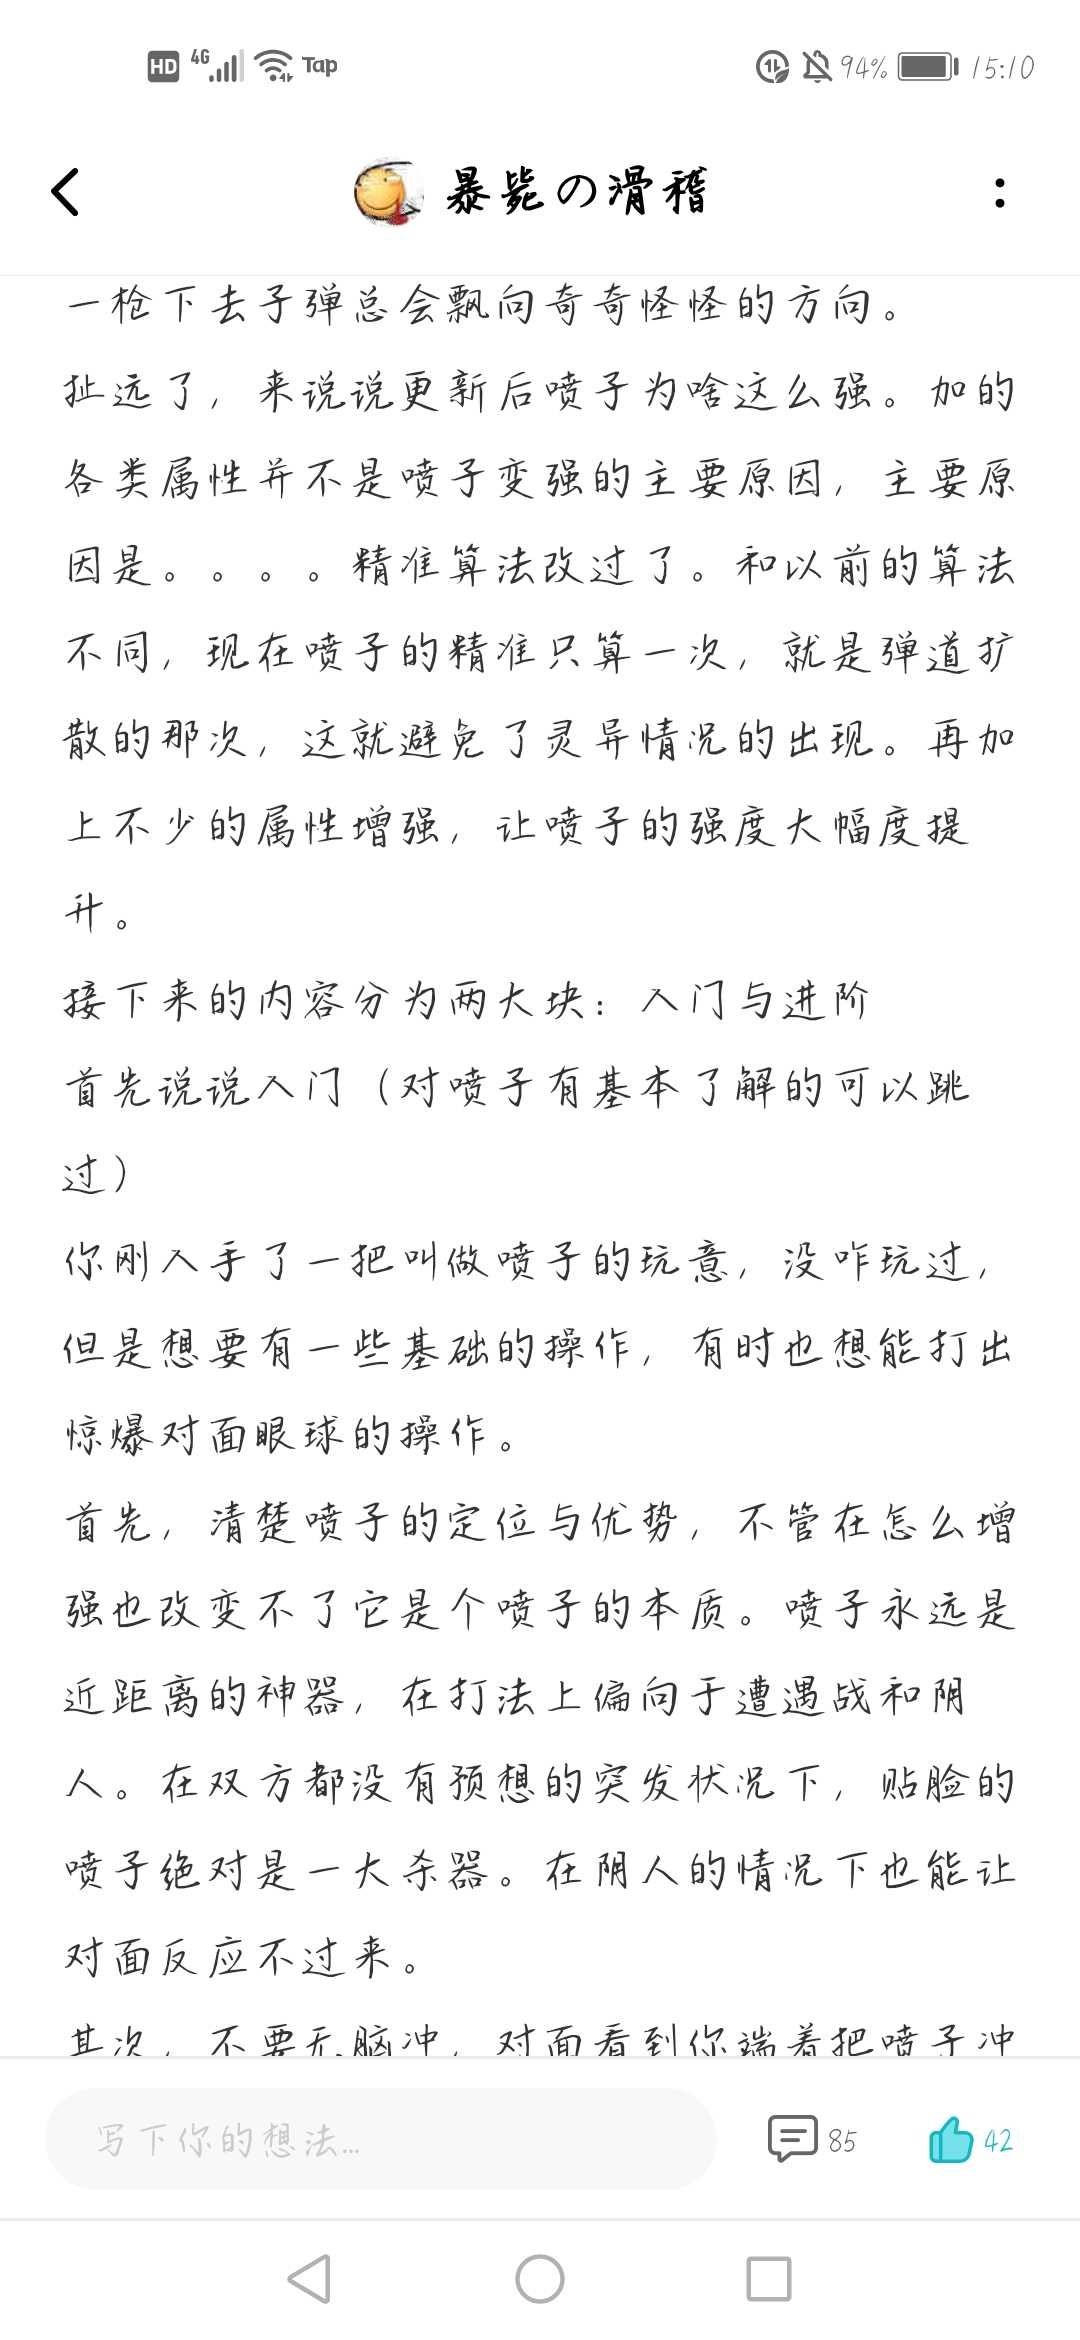 HD 4G Tap 94% 15:10
暴毙の滑稽
一枪下去子弹总会飘向奇奇怪怪的方向。
扯远了，来说说更新后喷子为啥这么强。加的
各类属性并不是喷子变强的主要原因，主要原
因是。。。。精准算法改过了。和以前的算法
不同，现在喷子的精准只算一次，就是弹道扩
散的那次，这就避免了灵异情况的出现。再加
上不少的属性增强，让喷子的强度大幅度提
升。
接下来的内容分为两大块：入门与进阶
首先说说入门（对喷子有基本了解的可以跳
过）
你刚入手了一把叫做喷子的玩意，没咋玩过，
但是想要有一些基础的操作，有时也想能打出
惊爆对面眼球的操作。
首先，清楚喷子的定位与优势，不管在怎么增
强也改变不了它是个喷子的本质。喷子永远是
近距离的神器，在打法上偏向于遭遇战和阴
人。在双方都没有预想的突发状况下，贴脸的
喷子绝对是一大杀器。在阴人的情况下也能让
对面反应不过来。
其次，不要无脑冲，对面看到你端着把喷子冲
写下你的想法...
85
42